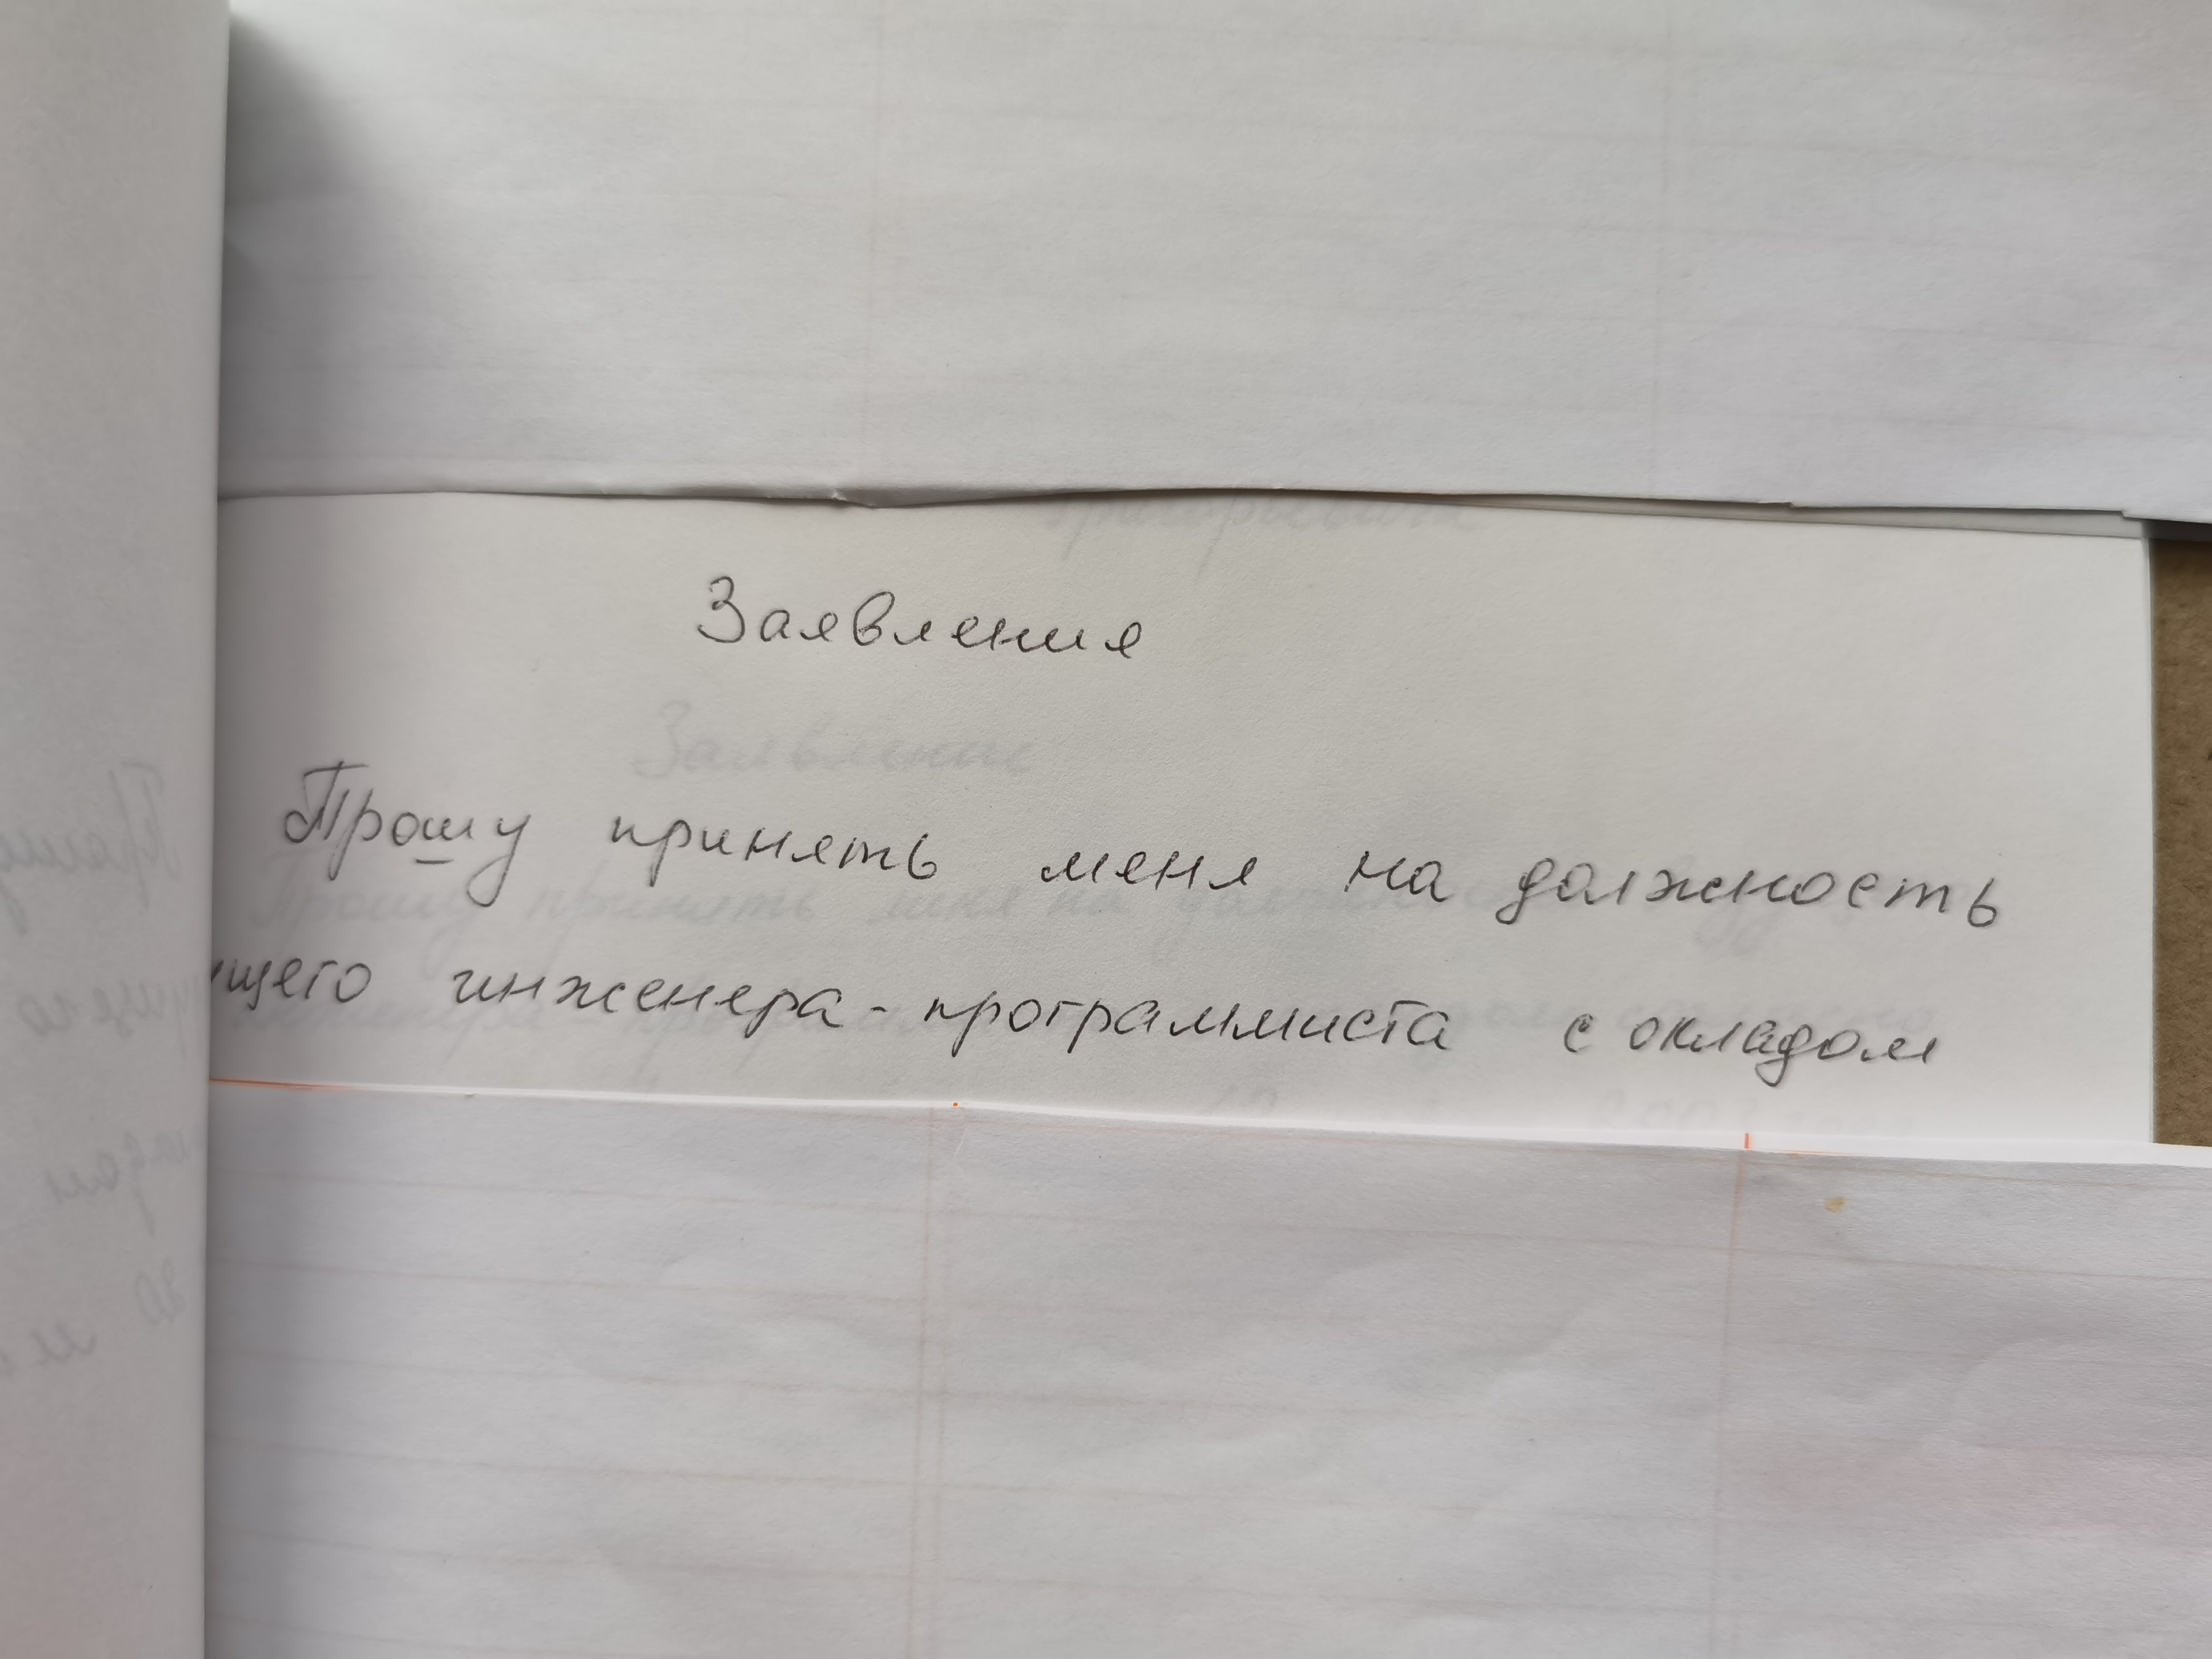 Заявление
Прошу принять меня на должность
ущего инженера-программиста с окладом